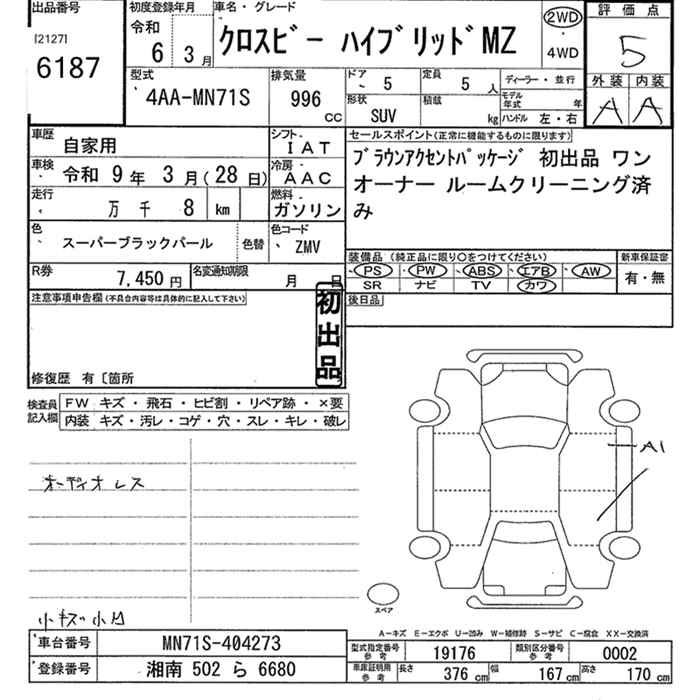 出品番号
[2127]
6187
初度登録年月
令和
6 3 月
車名・グレード
クロスビー ハイブリッドMZ
2WD
・
4WD
評価点
5
外装 内装
A A
型式
4AA-MN71S
排気量
996
CC
ドア
5
定員
5 人
ディーラー・並行
形状
SUV
積載
kg
モデル年式 年
ハンドル 左・右
車歴
自家用
シフト
IAT
車検
令和 9 年 3 月(28日)
冷房
AAC
走行
万 千 8 km
燃料
ガソリン
色
スーパーブラックパール
色替
色コード
ZMV
R券
7,450 円
名変通知期限
月 日
セールスポイント(正常に機能するものに限ります)
ブラウンアクセントパッケージ 初出品 ワン
オーナー ルームクリーニング済
み
装備品(純正品に限り○をつけてください)
PS ・ PW ・ ABS ・ エアB ・ AW
SR ナビ TV カワ
新車保証書
有・無
後日品
注意事項申告欄(不具合内容等は具体的に記入して下さい)
初出品
修復歴 有〔箇所
検査員
記入欄
FW キズ・飛石・ヒビ割・リペア跡・×要
内装 キズ・汚レ・コゲ・穴・スレ・キレ・破レ
オーディオレス
小キズ小凹
A1
スペア
A-キズ E-エクボ U-凹み W-補修跡 S-サビ C-腐食 XX-交換済
車台番号
MN71S-404273
登録番号
湘南 502 ら 6680
型式指定番号
参考
19176
類別区分番号
参考
0002
車庫証明用
参考
長さ 376 cm 幅 167 cm 高さ 170 cm